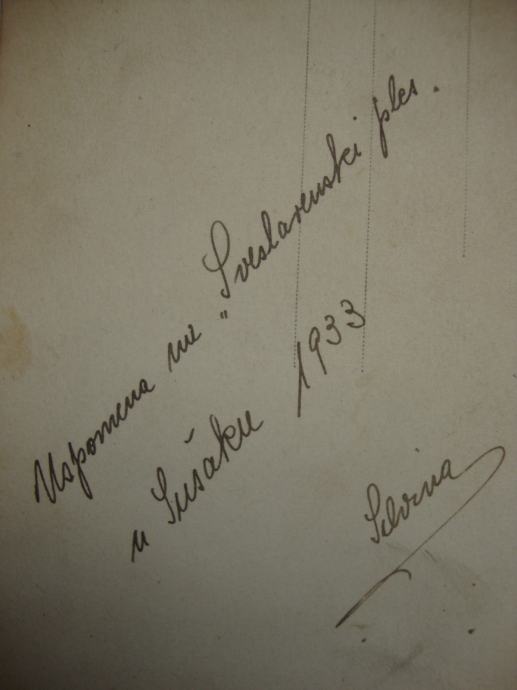 Uspomena na "Sveslavenski ples.
u Sušaku 1933
Silvina